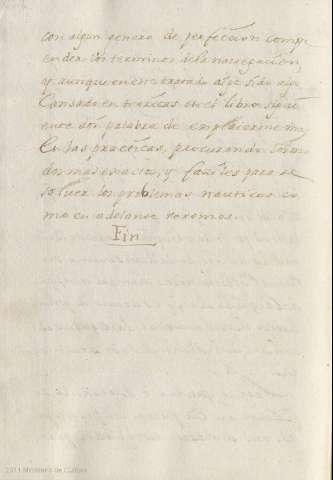 con algun genero de perfeccion comp
ender los terminos de la navegacion,
y aunque en este tratado
en teoricas en el libro sigui
ente doy palabra de emplearme mas
en las practicas, procurando
dos mas exactos, y faciles para re
solver los problemas nauticos co
mo en adelante veremos.
Fin
2011 Ministerio de Cultura